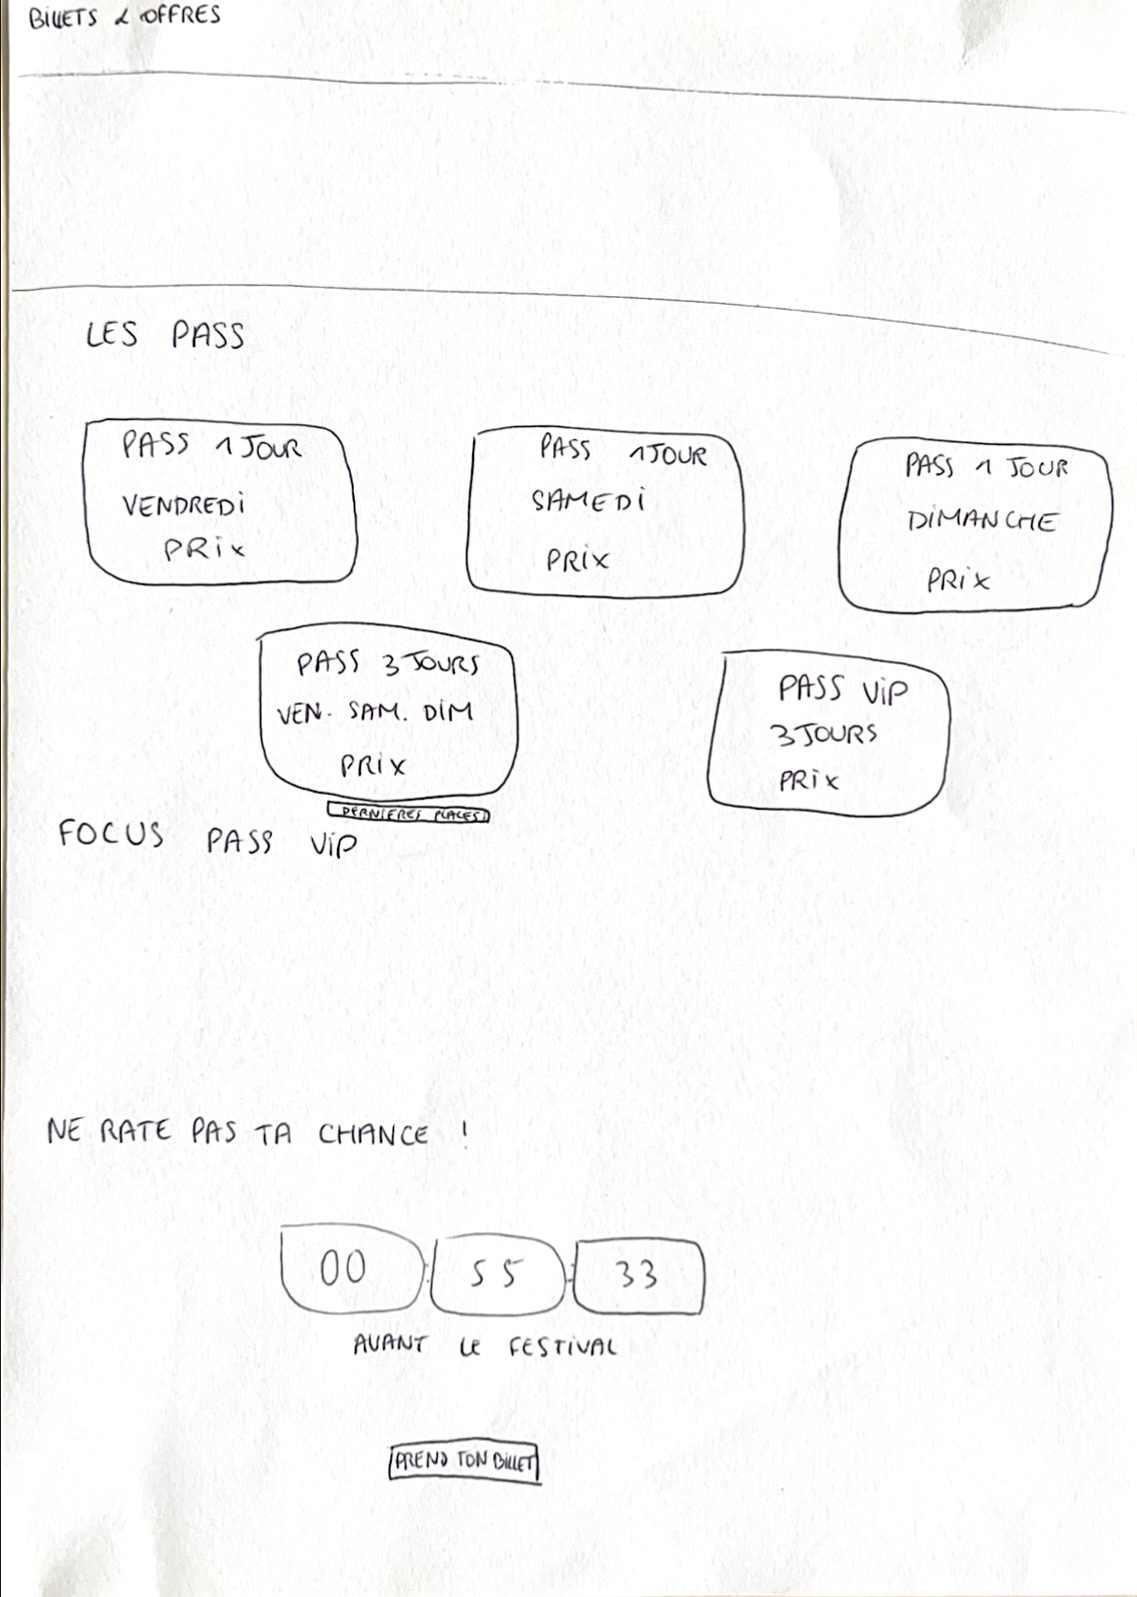 BILLETS & OFFRES
LES PASS
PASS 1 JOUR
VENDREDI
PRIX
PASS 1 JOUR
SAMEDI
PRIX
PASS 1 JOUR
DIMANCHE
PRIX
PASS 3 JOURS
VEN. SAM. DIM
PRIX
DERNIERES PLACES
PASS VIP
3 JOURS
PRIX
FOCUS PASS VIP
NE RATE PAS TA CHANCE !
00 : 55 : 33
AVANT LE FESTIVAL
PREND TON BILLET